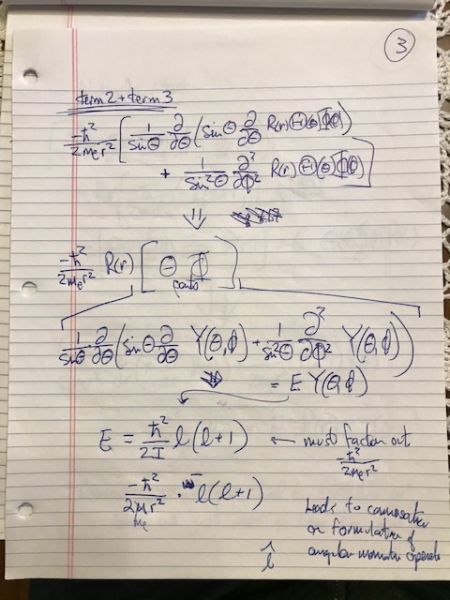 3
term 2 + term 3
-ħ²/2mₑr² [ 1/sinθ ∂/∂θ (sinθ ∂/∂θ R(r)Θ(θ)Φ(ϕ))
+ 1/sin²θ ∂²/∂ϕ² R(r) Θ(θ)Φ(ϕ) ]
⇓
-ħ²/2mₑr² R(r) [ Θ Φ ]
parts
1/sinθ ∂/∂θ (sinθ ∂/∂θ Y(θ,ϕ) + 1/sin²θ ∂²/∂ϕ² Y(θ,ϕ))
= E Y(θ,ϕ)
E = ħ²/2I l(l+1) ← must factor out
-ħ²/2mₑr²
-ħ²/2μr² · - l(l+1)
mₑ
Leads to conversation
on formulation of
angular momentum operator
l̂